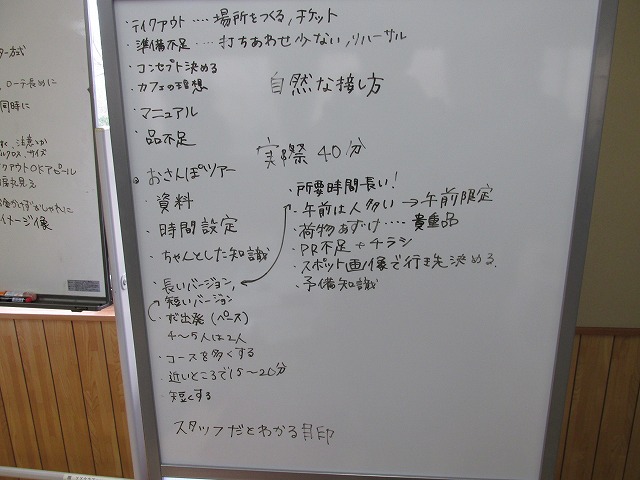 ター方式
、ローテ長めに
同時に
、注意が
クロス、サイズ
クアウトOKアピール
におしゃれに
イメージ像
・テイクアウト‥‥場所をつくる,チケット
・準備不足‥‥打ちあわせ少ない,リハーサル
・コンセプト決める
・カフェの理想
自然な接し方
・マニュアル
・品不足
実際 40分
おさんぽツアー
・資料
・時間設定
・ちゃんとした知識
・長いバージョン,
・短いバージョン
・出発(ペース)
4〜5人は2人
・コースを多くする
・近いところで15〜20分
・短くする
・所要時間長い!
・午前は人多い→午前限定
・荷物あずけ‥‥貴重品
・PR不足 + チラシ
・スポット画像で行き先決める.
・予備知識
スタッフだとわかる目印